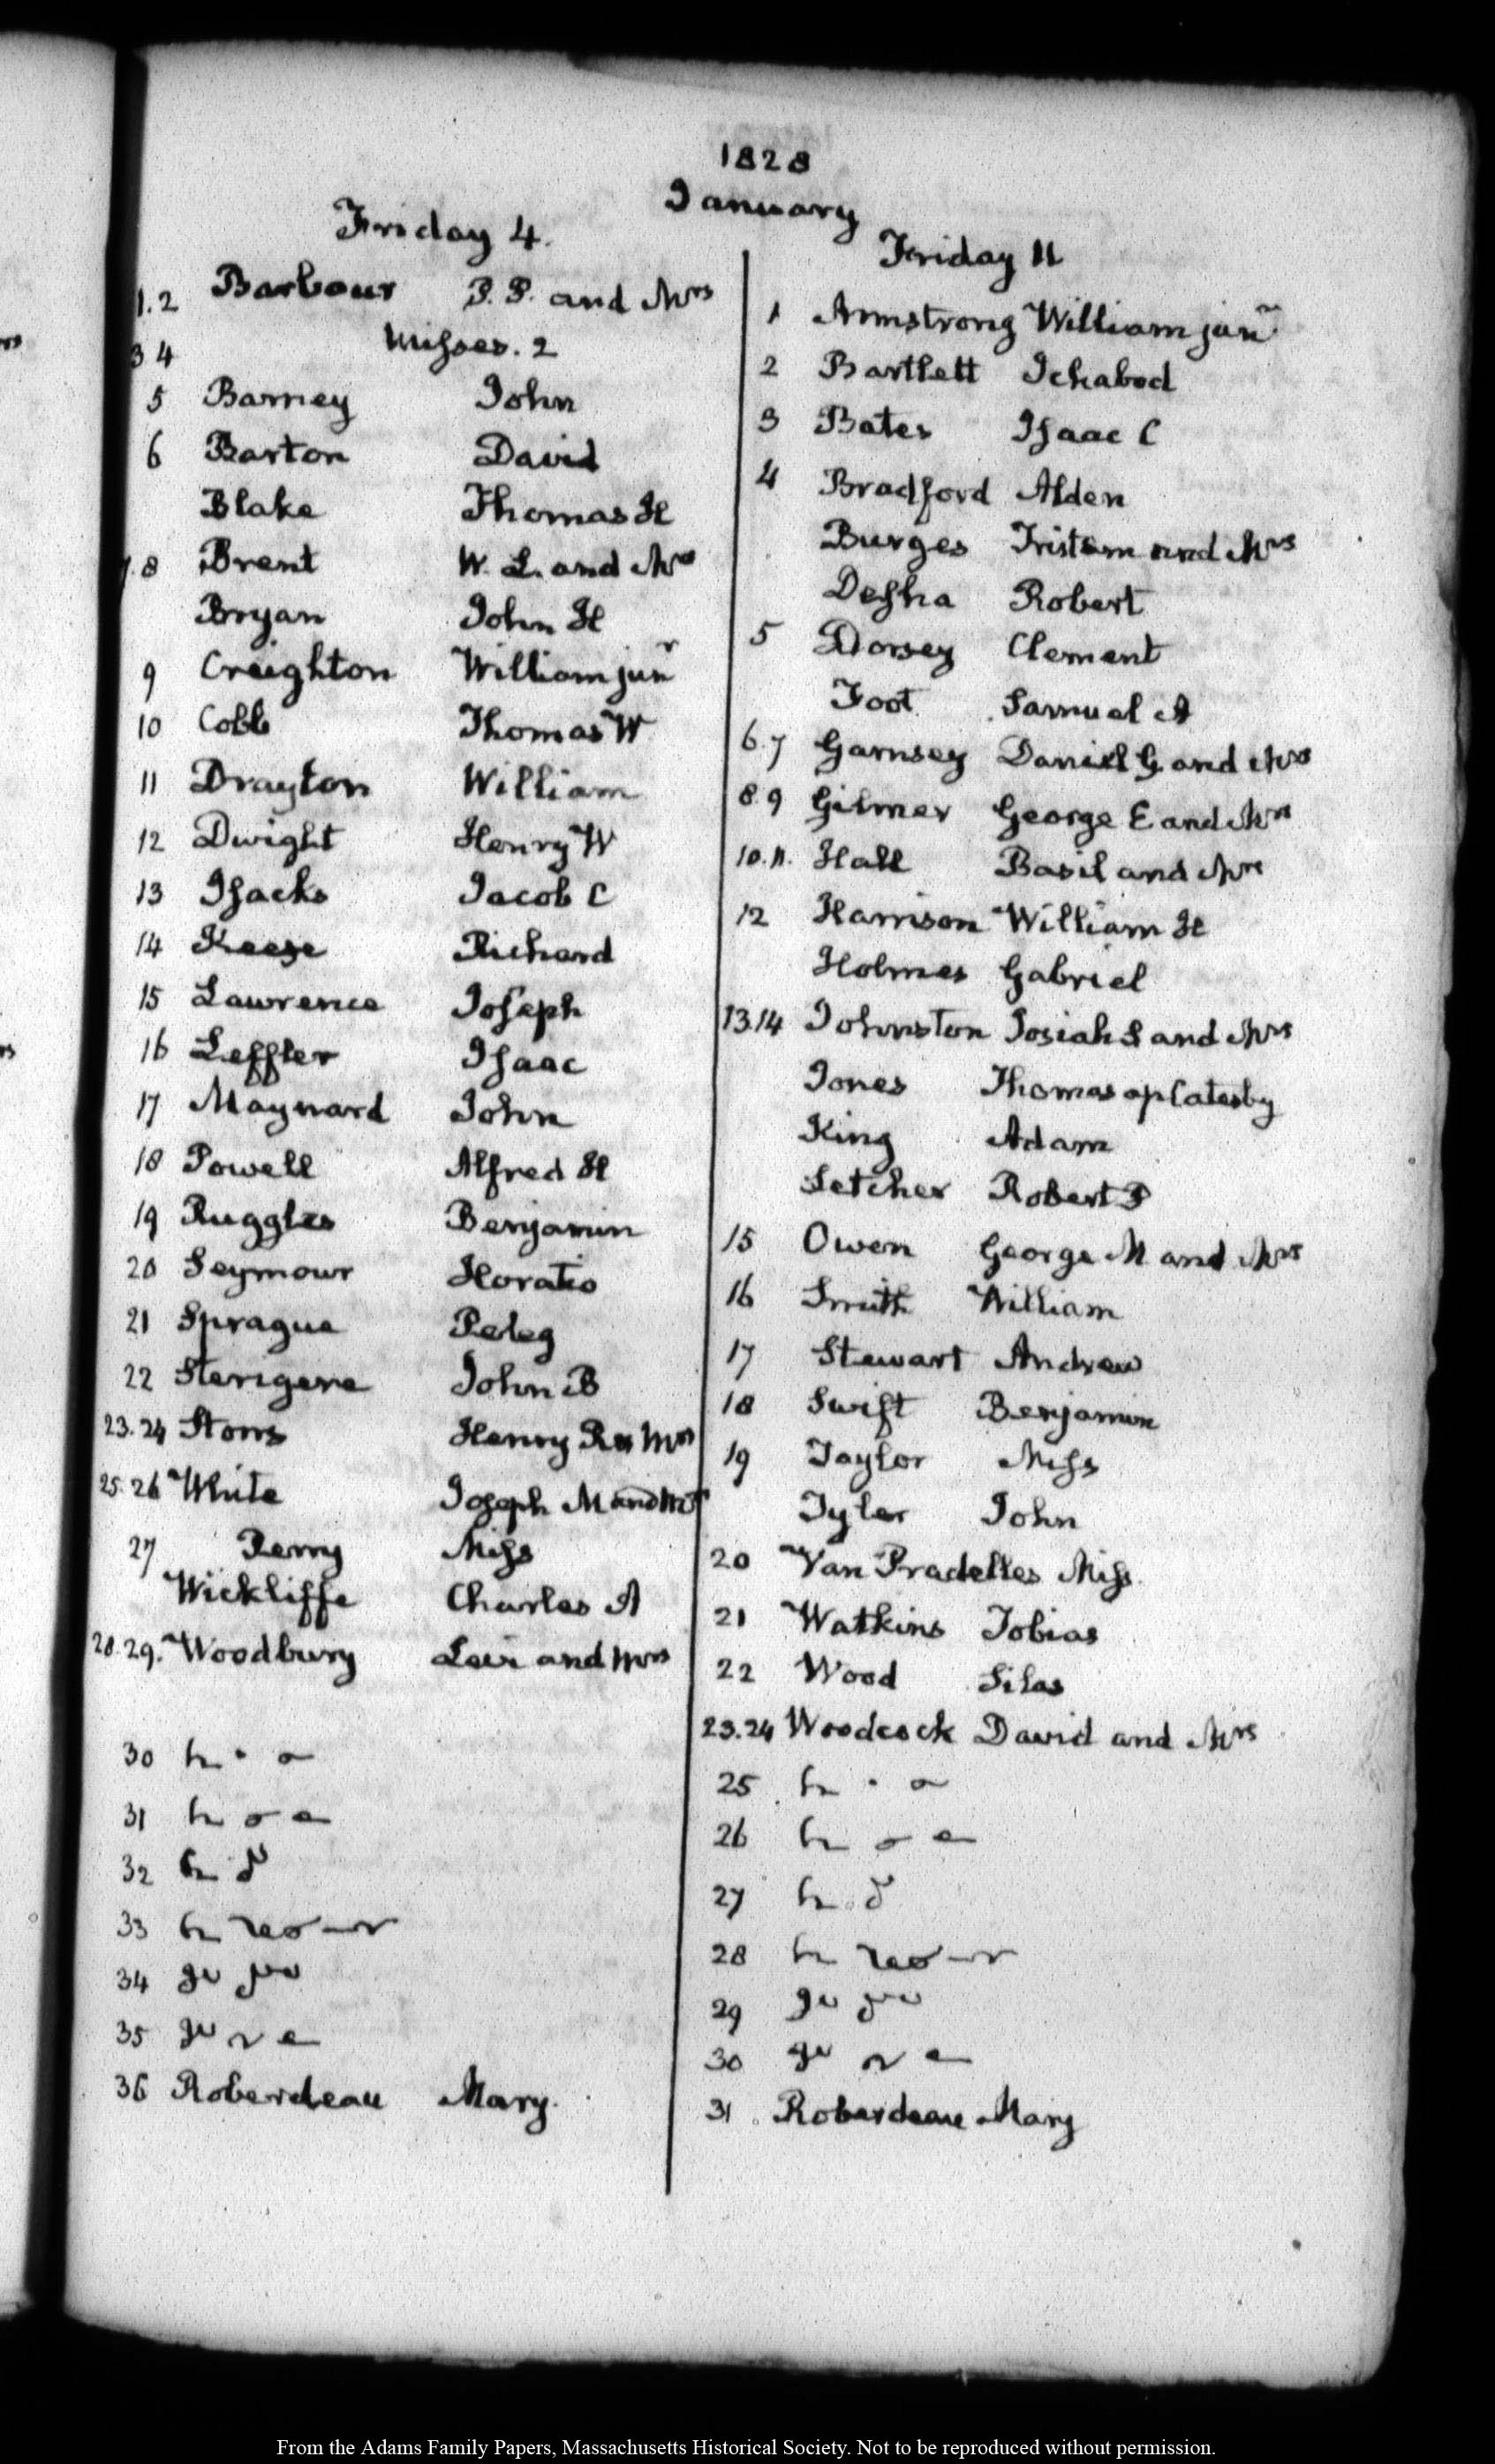 1828
January
Friday 4.
1.2 Barbour P. P. and Mrs
3 4 Misses. 2
5 Barney John
6 Barton David
Blake Thomas H
7.8 Brent W. L. and Mrs
Bryan John H
9 Creighton William junr
10 Cobb Thomas W
11 Drayton William
12 Dwight Henry W
13 Isacks Jacob C
14 Keese Richard
15 Lawrence Joseph
16 Leffler Isaac
17 Maynard John
18 Powell Alfred H
19 Ruggles Benjamin
20 Seymour Horatio
21 Sprague Peleg
22 Sterigere John B
23.24 Storrs Henry R & Mrs
25.26 White Joseph M and Mrs
27 Perry Miss
Wickliffe Charles A
28.29. Woodbury Levi and Mrs
30
31
32
33
34
35
36 Roberdeau Mary.
Friday 11
1 Armstrong William junr
2 Bartlett Ichabod
3 Bates Isaac C
4 Bradford Alden
Burges Tristam and Mrs
Desha Robert
5 Dorsey Clement
Foot Samuel A
6.7 Garnsey Daniel G and Mrs
8.9 Gilmer George E and Mrs
10.11. Hall Basil and Mrs
12 Harrison William H
Holmes Gabriel
13.14 Johnston Josiah S and Mrs
Jones Thomas ap Catesby
King Adam
Letcher Robert P
15 Owen George M and Mrs
16 Smith William
17 Stewart Andrew
18 Swift Benjamin
19 Taylor Miss
Tyler John
20 Van Pradelles Miss.
21 Watkins Tobias
22 Wood Silas
23.24 Woodcock David and Mrs
25
26
27
28
29
30
31. Roberdeau Mary
From the Adams Family Papers, Massachusetts Historical Society. Not to be reproduced without permission.